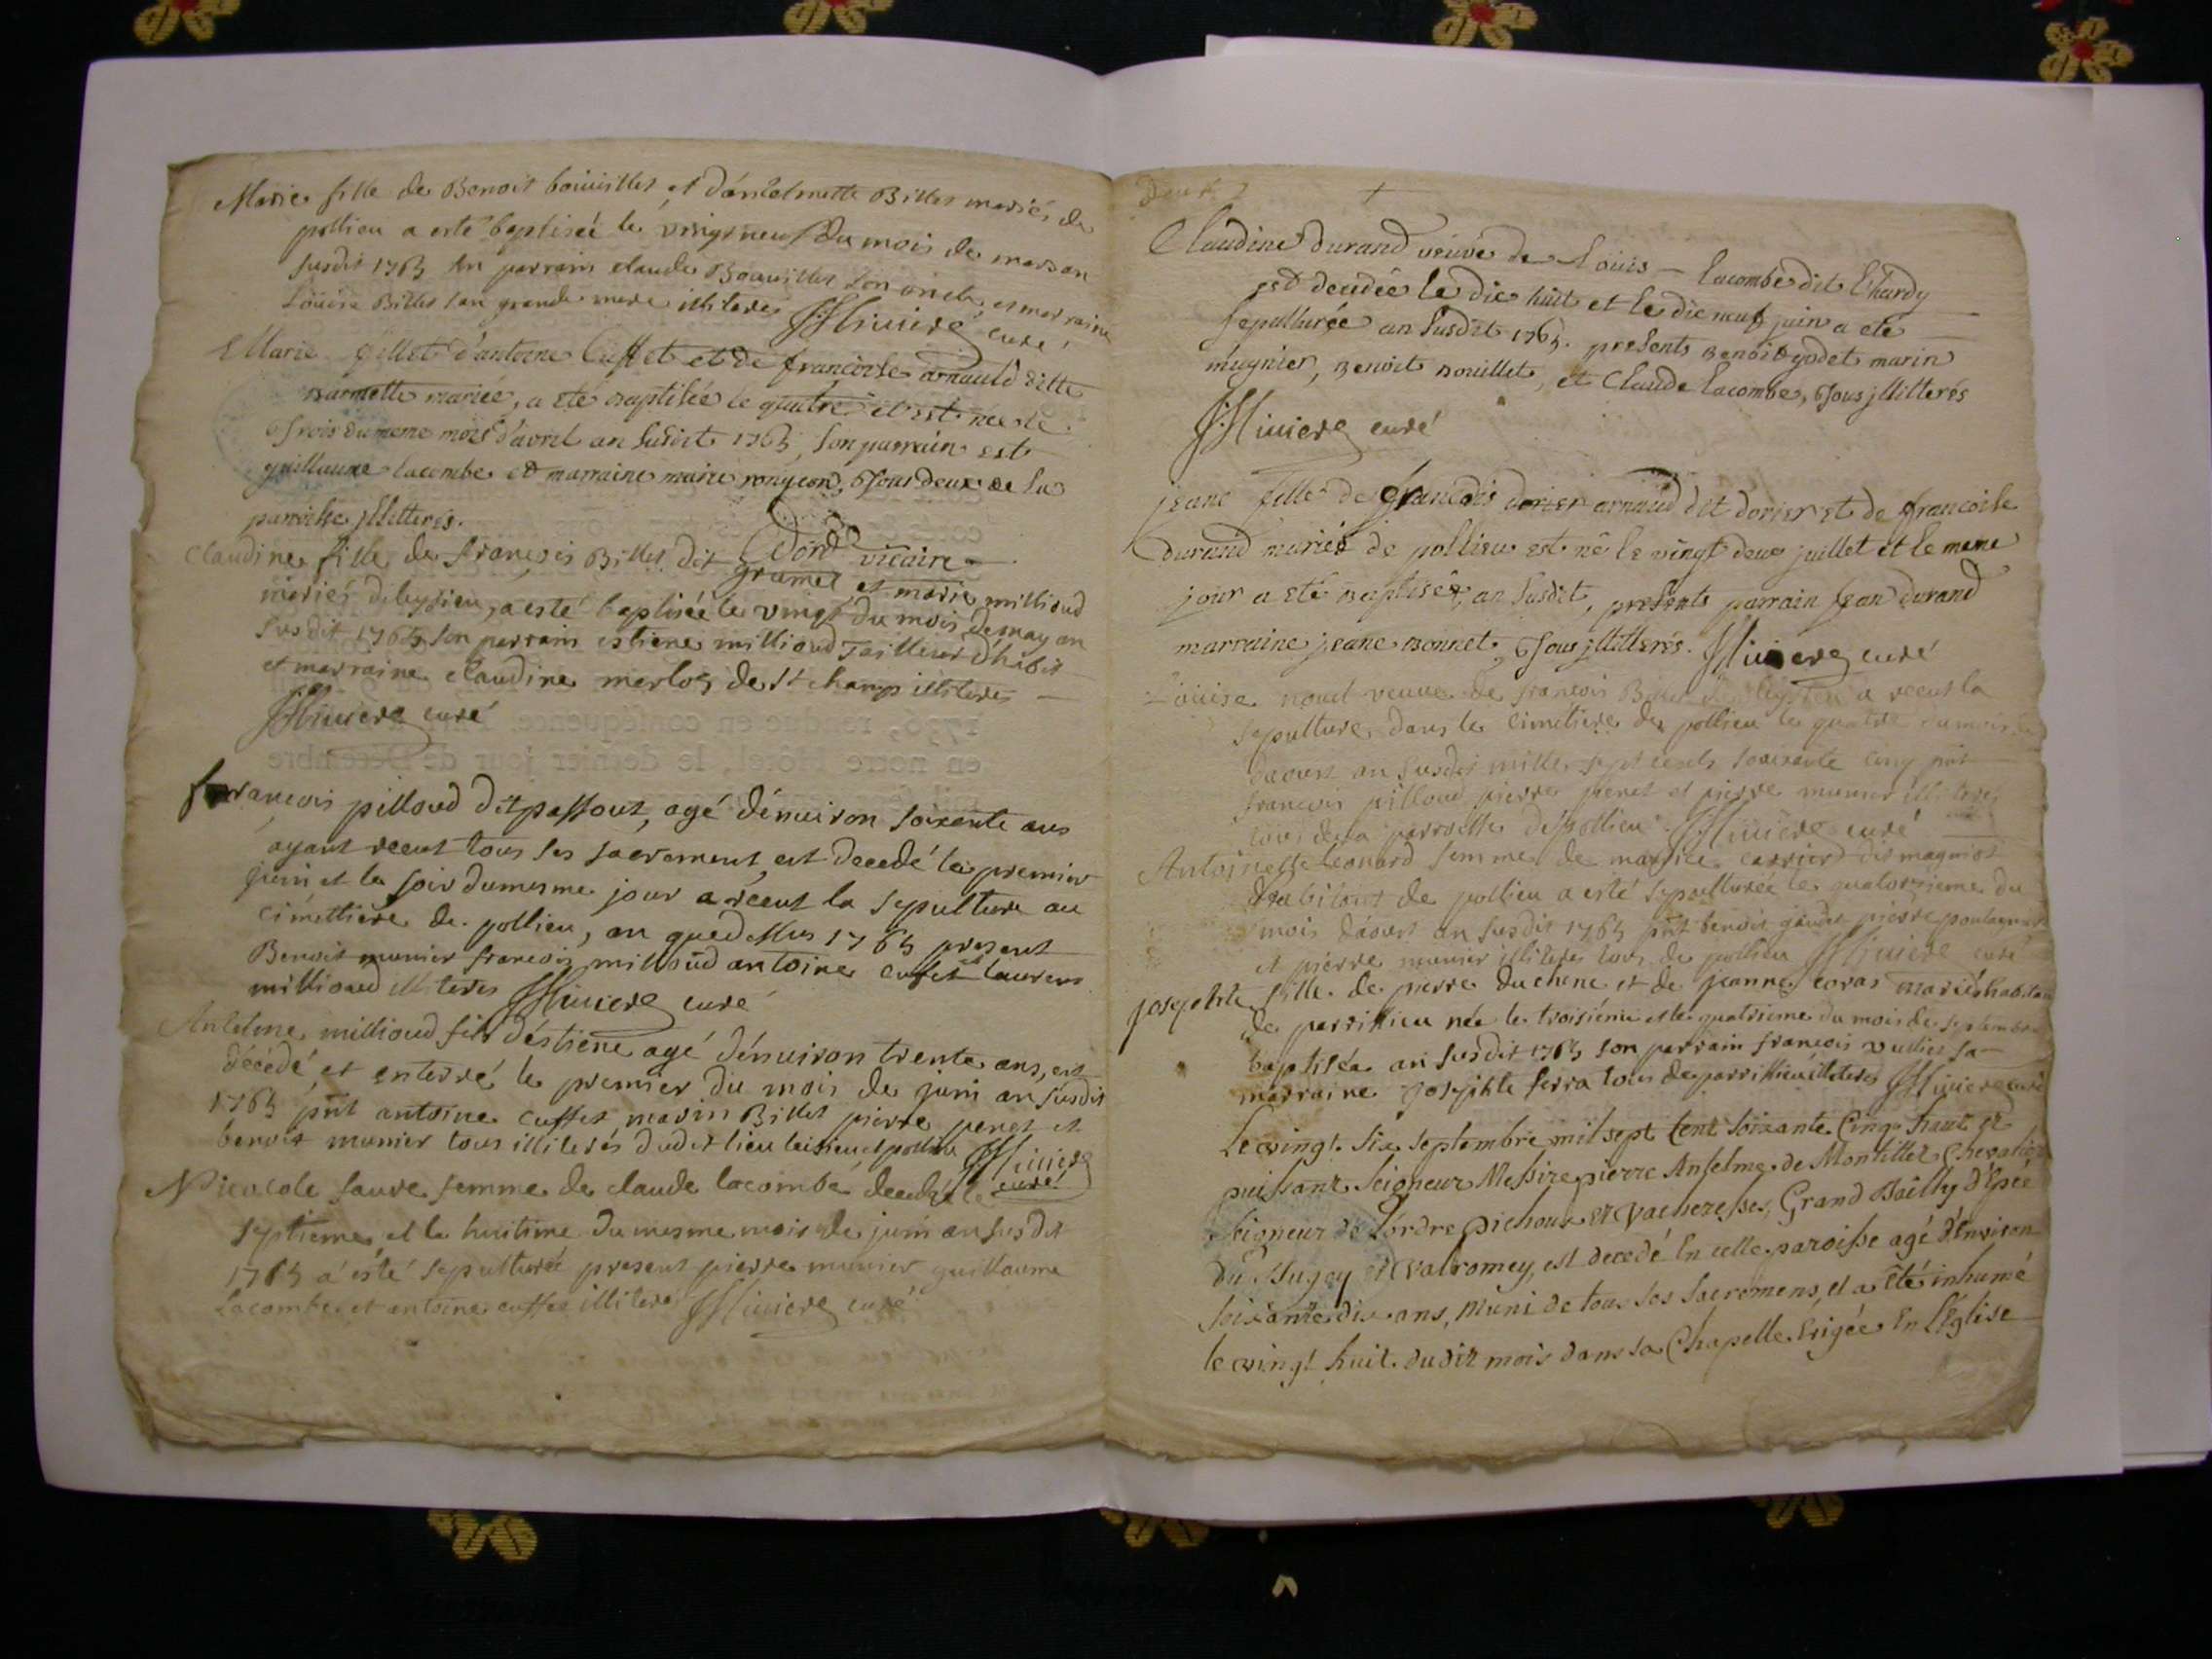 Marie fille de Benoit bouillet et d'anthelmette Billet mariés de
pollieu a esté baptiseé le vingt neuf du mois de mars an
susdit 1765 son parrain claude Bouillet son oncle et marraine
Louise Billet sa grande mere illiterés Miviere curé
Marie fillet d'antoine Cuffet et de francoise arnauld ditte
marmette mariée, a eté baptisée le quatre et est née le
trois du meme mois d'avril an susdit 1765, son parrain est
guillaume lacombe et marraine marie rongeon, tous deux de la
paroisse jllitterés.
vicaire
Claudine fille de François Billet dit gramel et marie millioud
mariés de leysieu, a esté baptisée le vingt du mois de may an
susdit 1765 son parrain estiene millioud Tailleur d'habit
et marraine claudine merloz de St champ illiteres
Miviere curé
françois pilloud dit passout, agé d'enuiron soixente ans
ayant receut tous ses sacrement, est decedé le premier
juin et le soir du mesme jour a receut la sepulture au
cimettiere de pollieu, an que dessus 1765 present
Benoit munier francois millioud antoine cuffet et laurens
millioud illiteres Miviere curé
Antelme millioud fils d'estiene agé d'enuiron trente ans, est
décédé et enterré le premier du mois de juin an susdit
1765 pnt antoine cuffet, marin Billet pierre penet et
benoit munier tous illiterés dudit lieu leisieu et pollieu Miviere
curé
Nicocole faure femme de claude lacombe decedée le
septieme, et le huitime du mesme mois de juin an susdit
1765 a esté sepulturée present pierre munier guillaume
Lacombe et antoine cuffet illiteré Miviere curé
Deux
Claudine durand veuve de Louis - lacombe dit Lhardy
est decedée le dix huit et le dix neuf juin a eté
sepulturée an susdit 1765. presents Benoit godet marin
mugnier, Benoit Bouillet, et Claude lacombe, tous jllitterés
Miviere curé
jeane fille de francois dorier arnaud dit dorier et de francoise
durand mariés de pollieu est né le vingt deux juillet et le meme
jour a eté baptiseé, an susdit, presents parrain jean durand
marraine jeane Bonnet, tous jllitterés. Miviere curé
Louise noud veuve de francois de leysieu a receut la
sepulture dans le cimetiere de pollieu le quatre du mois de
d'aoust an susdit mille sept cents soixante cinq pnt
francois pilloud pierre penet et pierre munier illiteres
tous de la parroesse de pollieu Miviere curé
Antoinette Leonard femme de maurice carrier dit magniot
d'habitant de pollieu a esté sepulturée le quatorzieme du
mois d'aoust an susdit 1765 pnt benoit gaudet pierre
et pierre munier illiteres tous de pollieu Miviere curé
josephte fille de pierre Duchene et de jeanne coras mariés habitant
de parrittieu née le troisiéme et le quatrieme du mois de septembre
baptiséa an susdit 1765 son parrain francois vullier sa
marraine josephte serra tous de parrittieu illiteres Miviere curé
Le vingt Six Septembre mil sept Cent Soixante Cinq haut et
puissant Seigneur Messire pierre Anselme de Montillet Chevalier
Seigneur de Lordre Dichoux et Vacheresses, Grand Bailly d'Epée
du Bugey et Valromey, est decedé En cette paroisse agé d'Environ
Soixante dix ans, Muni de tous ses Sacremens, et a Eté inhumé
le vingt huit dudit mois dans sa Chapelle Erigée En L'Eglise